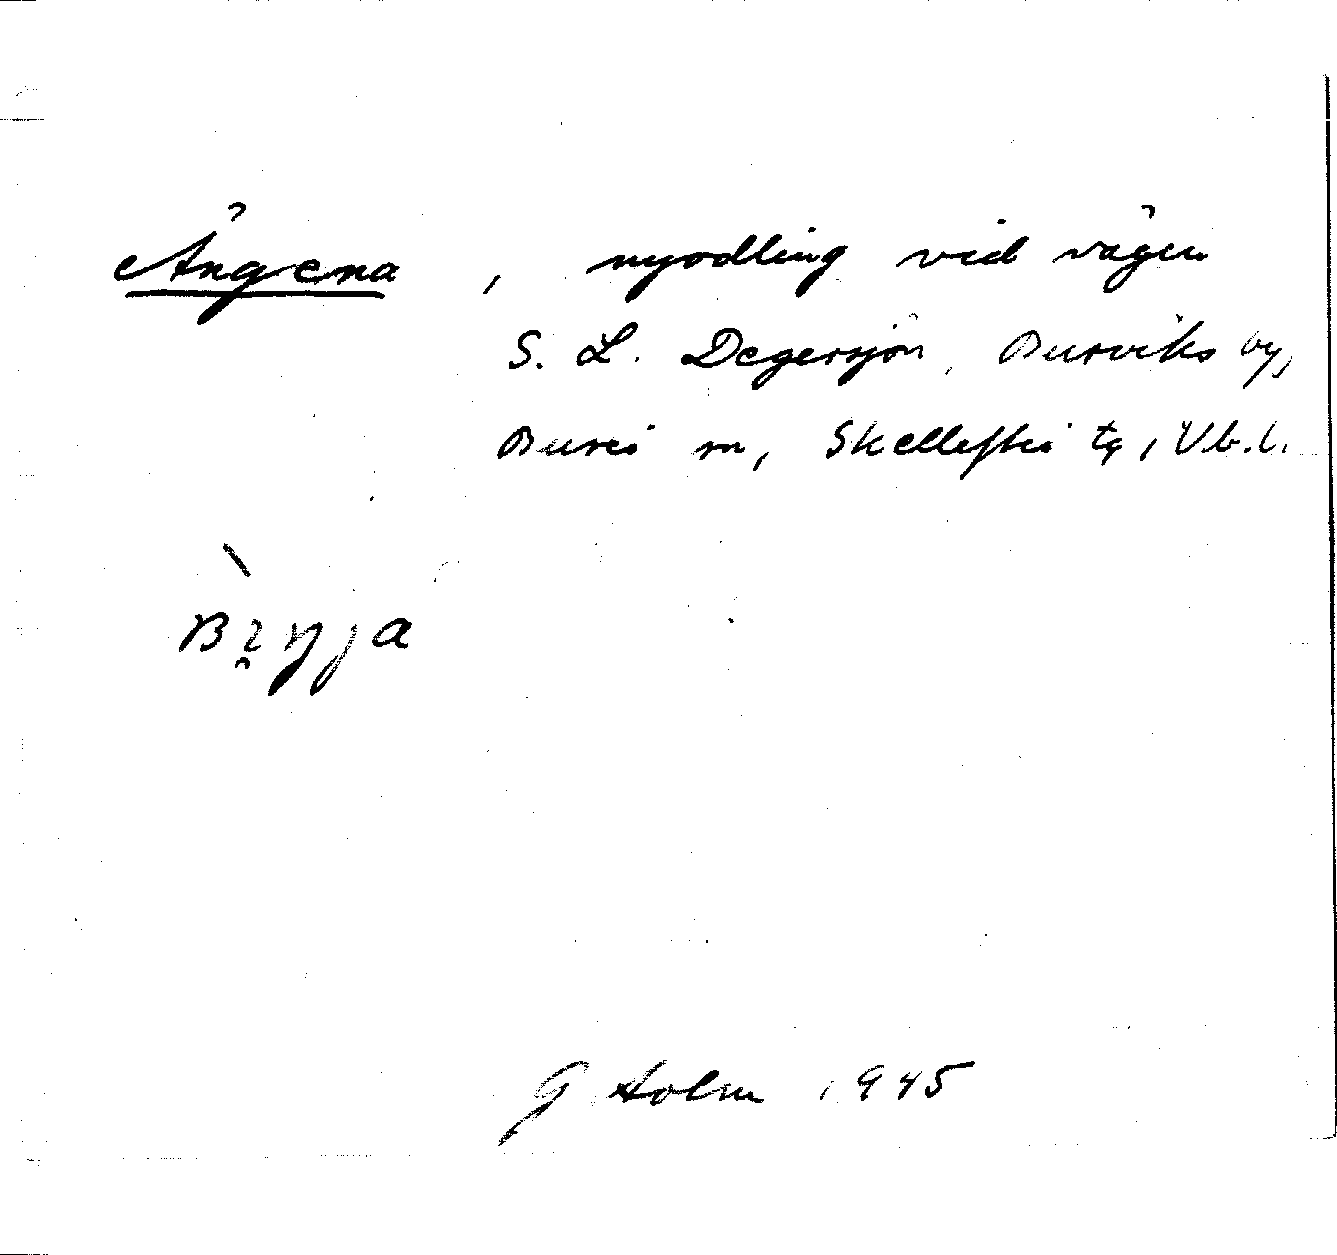 Ängena, nyodling vid vägen
S. L. Degersjön, Bursviks by,
Bureå m, Skellefteå tg, Vb. l.
G Holm 1945